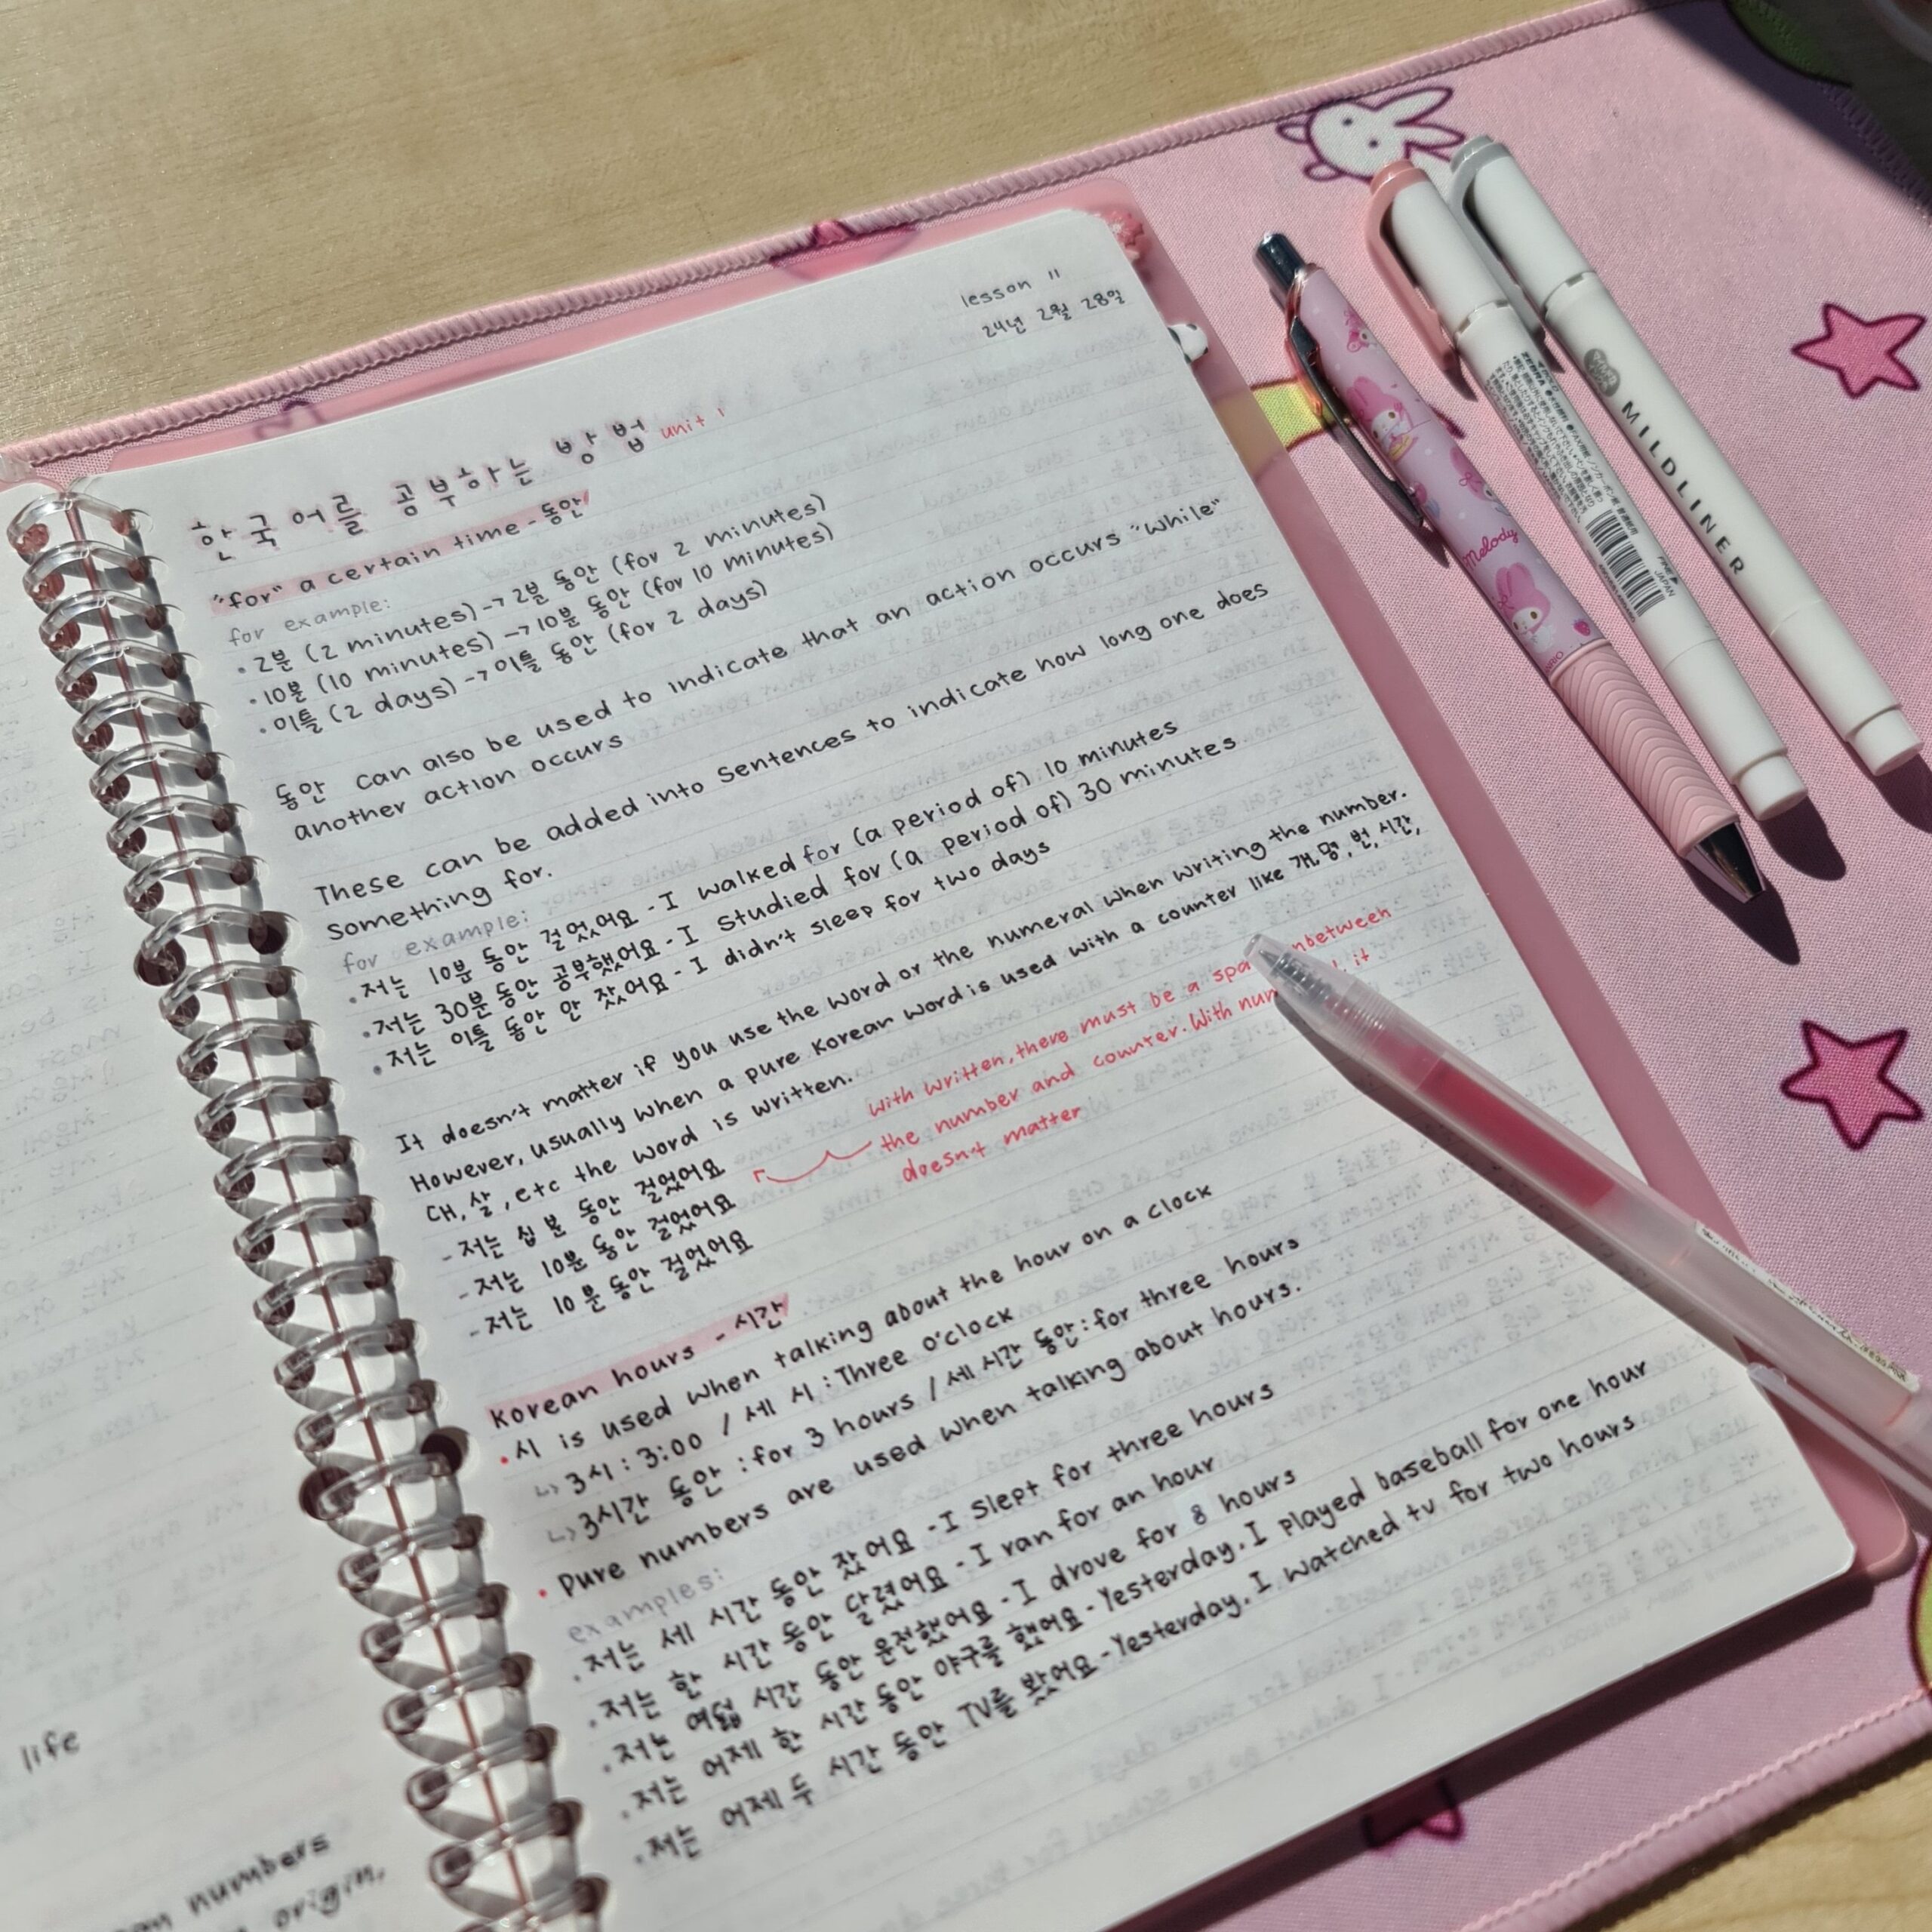 lesson 11
24년 2월 28일
한국어를 공부하는 방법 unit 1
"for" a certain time - 동안
for example:
· 2분 (2 minutes) -> 2분 동안 (for 2 minutes)
· 10분 (10 minutes) -> 10분 동안 (for 10 minutes)
· 이틀 (2 days) -> 이틀 동안 (for 2 days)
동안 can also be used to indicate that an action occurs "while"
another action occurs
These can be added into sentences to indicate how long one does
something for.
for example:
· 저는 10분 동안 걸었어요 - I walked for (a period of) 10 minutes
· 저는 30분 동안 공부했어요 - I studied for (a period of) 30 minutes
· 저는 이틀 동안 안 잤어요 - I didn't sleep for two days
It doesn't matter if you use the word or the numeral when writing the number.
However, usually when a pure Korean word is used with a counter like 개, 명, 번, 시간,
대, 살, etc the word is written.
with written, there must be a spa inbetween
the number and counter. With num it
doesn't matter
- 저는 십 분 동안 걸었어요
- 저는 10분 동안 걸었어요
- 저는 10 분 동안 걸었어요
Korean hours - 시간
· 시 is used when talking about the hour on a clock
↳ 3시 : 3:00 / 세 시 : Three o'clock
↳ 3시간 동안 : for 3 hours / 세 시간 동안 : for three hours
· Pure numbers are used when talking about hours.
examples:
· 저는 세 시간 동안 잤어요 - I slept for three hours
· 저는 한 시간 동안 달렸어요 - I ran for an hour
· 저는 여덟 시간 동안 운전했어요 - I drove for 8 hours
· 저는 어제 한 시간 동안 야구를 했어요 - Yesterday, I played baseball for one hour
· 저는 어제 두 시간 동안 TV를 봤어요 - Yesterday, I watched tv for two hours
life
numbers
origin,
Melody
MILDLINER